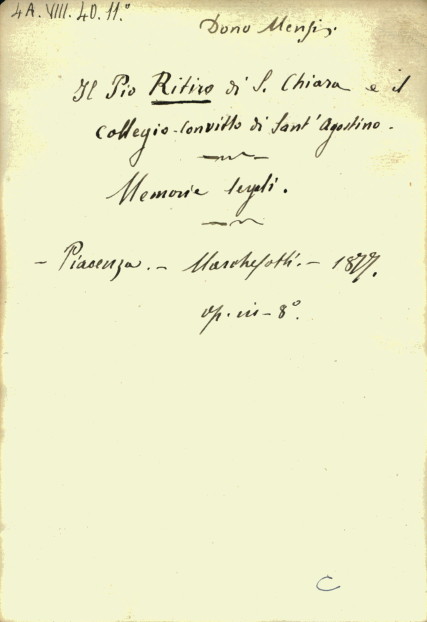 4A. VIII. 40. 11.°
Dono Mensi
Il Pio Ritiro di S. Chiara e il
Collegio-Convitto di Sant' Agostino.
Memorie legali.
- Piacenza. - Marchesotti. - 1877.
op. in - 8°.
C